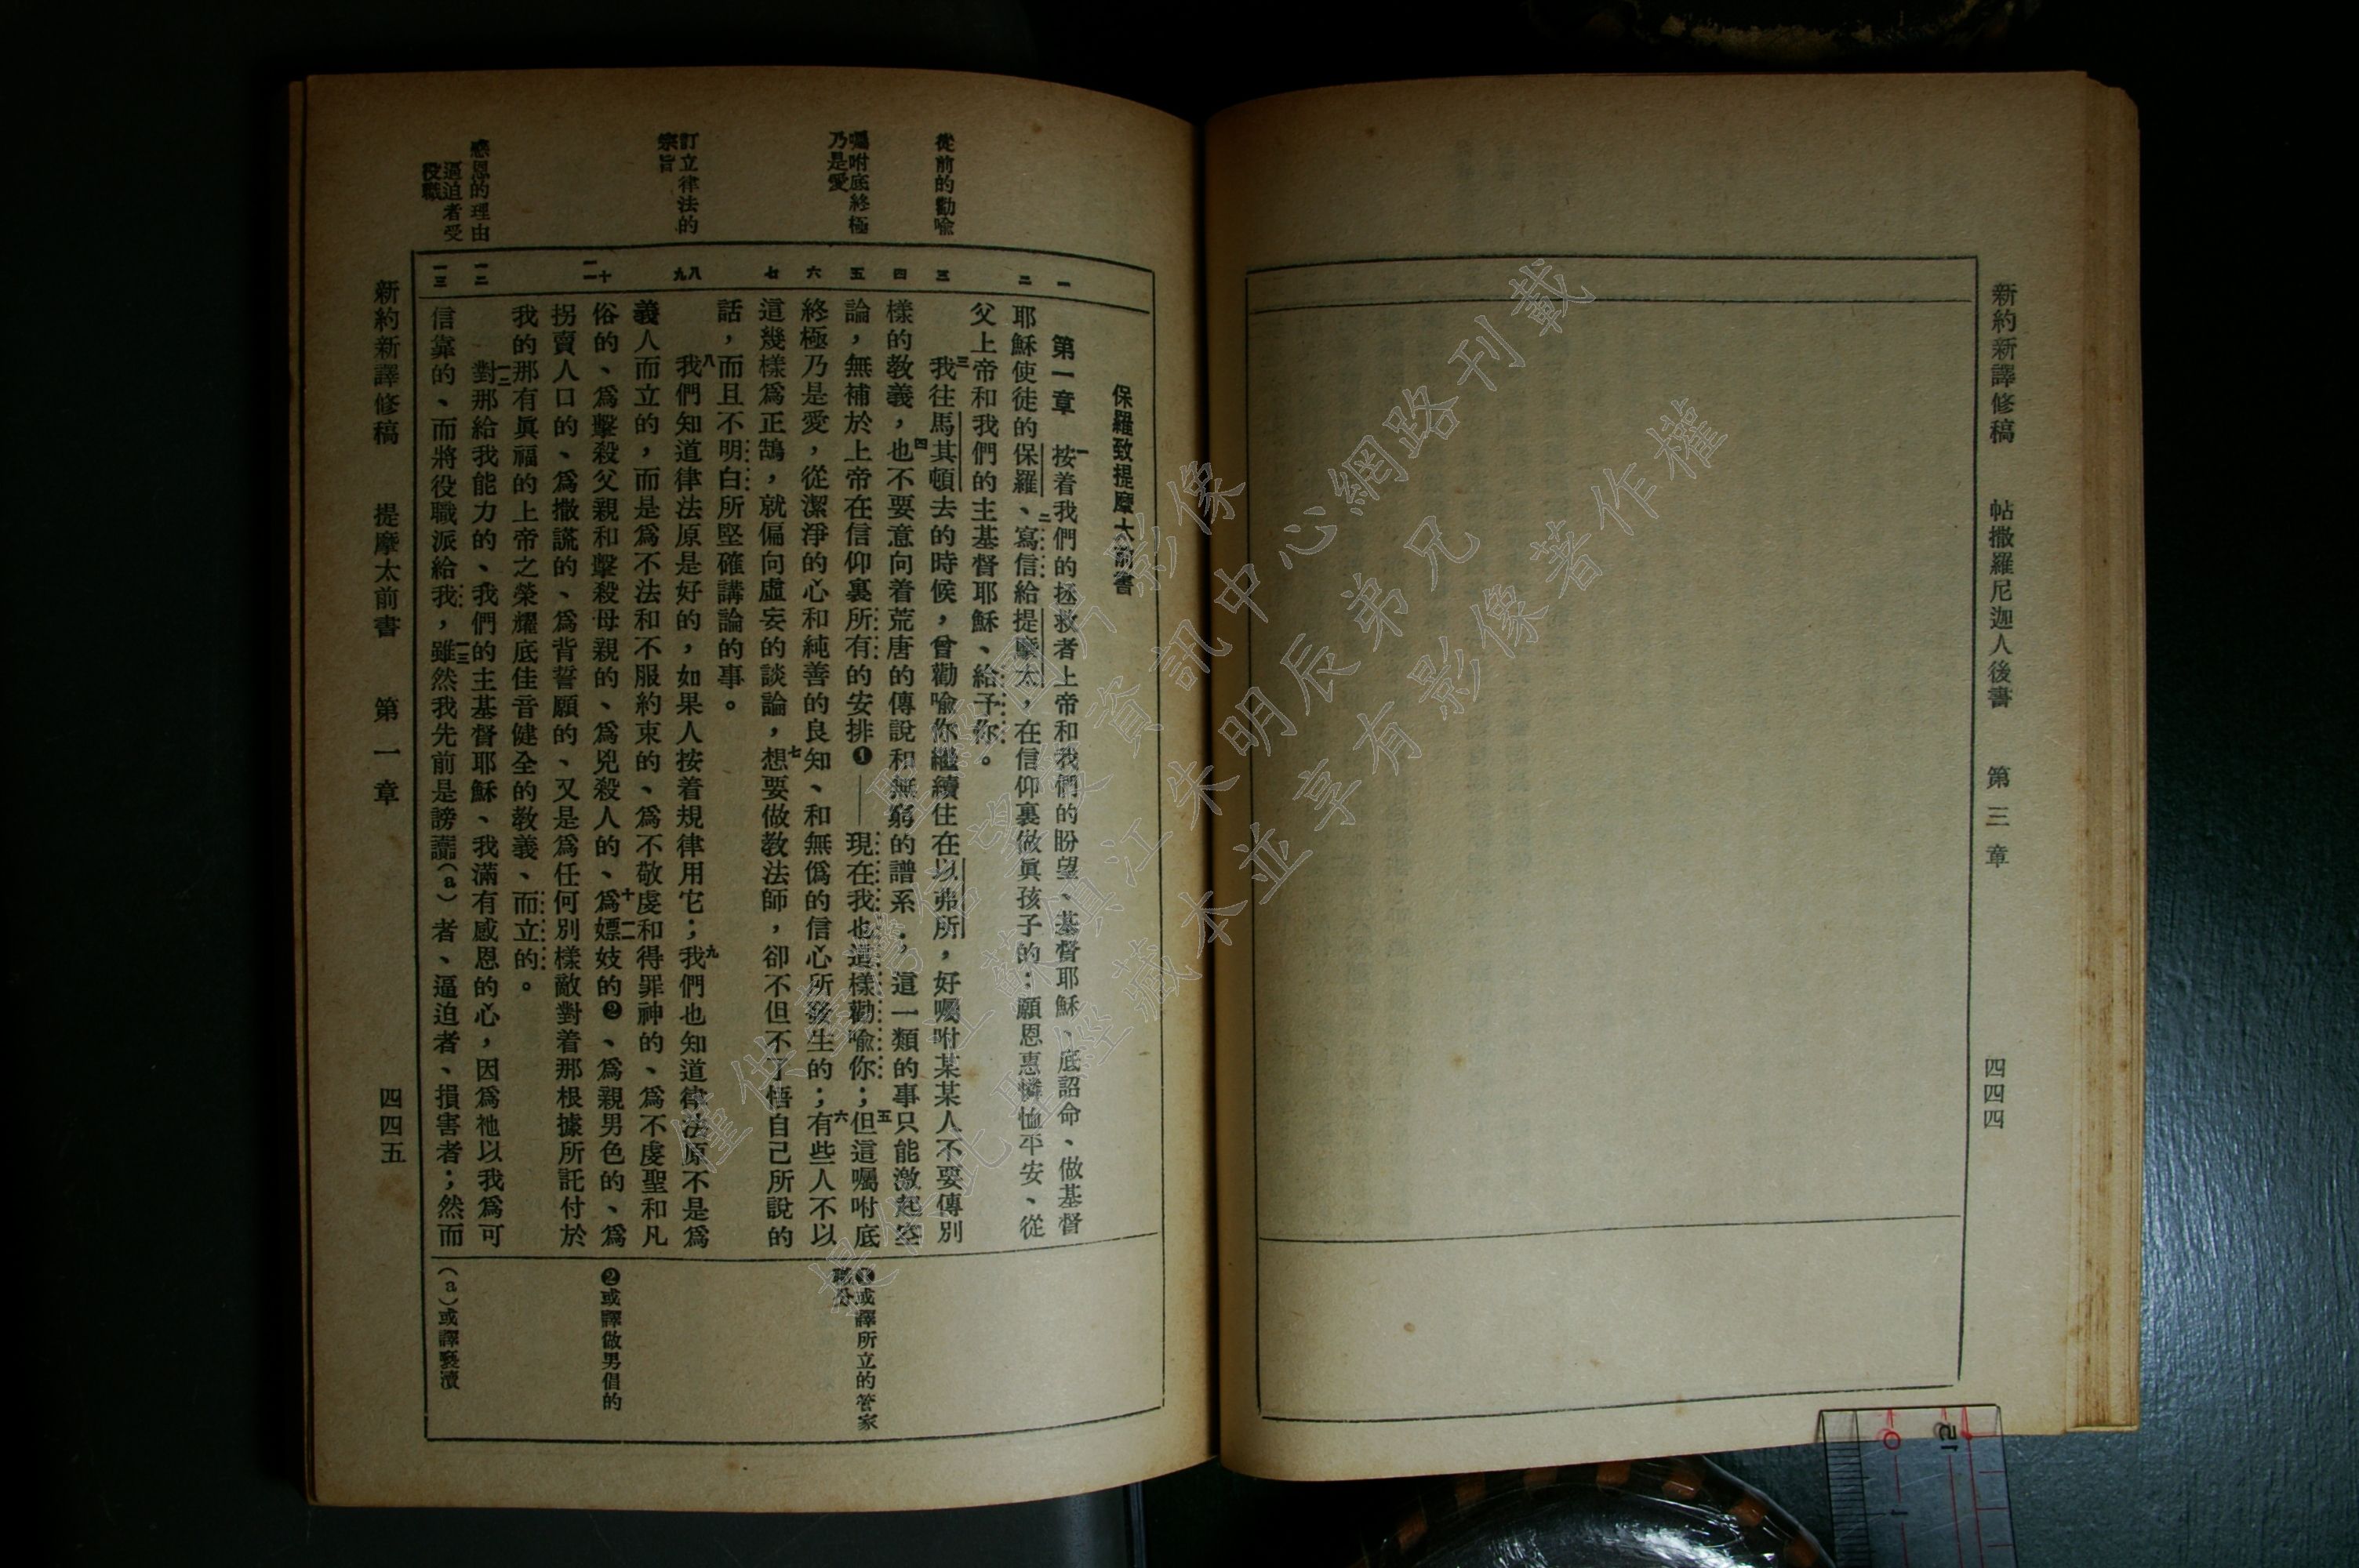 新約新譯修稿　帖撒羅尼迦人後書　第三章　四四四
保羅致提摩太前書
第一章　一按着我們的拯救者上帝和我們的盼望、基督耶穌、底詔命、做基督
耶穌使徒的保羅、二寫信給提摩太，在信仰裏做眞孩子的：願恩惠憐恤平安、從
父上帝和我們的主基督耶穌、給予你。
三我往馬其頓去的時候，曾勸喩你繼續住在以弗所，好囑咐某某人不要傳別
樣的教義，四也不要意向着荒唐的傳說和無窮的譜系，這一類的事只能激起空
論，無補於上帝在信仰裏所有的安排❶——現在我也這樣勸喩你；五但這囑咐底
終極乃是愛，從潔淨的心和純善的良知、和無僞的信心所發生的；六有些人不以
這幾樣爲正鵠，就偏向虛妄的談論，七想要做教法師，卻不但不了悟自己所說的
話，而且不明白所堅確講論的事。
八我們知道律法原是好的，如果人按着規律用它；九我們也知道律法原不是爲
義人而立的，而是爲不法和不服約束的、爲不敬虔和得罪神的、爲不虔聖和凡
俗的、爲擊殺父親和擊殺母親的、爲兇殺人的、十爲嫖妓的❷、爲親男色的、爲
拐賣人口的、爲撒謊的、爲背誓願的、又是爲任何別樣敵對着那根據所託付於
我的那有眞福的上帝之榮耀底佳音健全的教義、而立的。
一二對那給我能力的、我們的主基督耶穌、我滿有感恩的心，因爲祂以我爲可
信靠的、而將役職派給我，一三雖然我先前是謗讟（a）者、逼迫者、損害者；然而
從前的勸喩
囑咐底終極
乃是愛
訂立律法的
宗旨
感恩的理由
逼迫者受
役職
一
二
三
四
五
六
七
八
九
十
一一
一二
一三
❶或譯所立的管家
職分
❷或譯做男倡的
（a）或譯褻瀆
新約新譯修稿　提摩太前書　第一章　四四五
僅供臺灣信望愛資訊中心網路刊載
江朱明辰弟兄
提供此聖經藏本並享有影像著作權